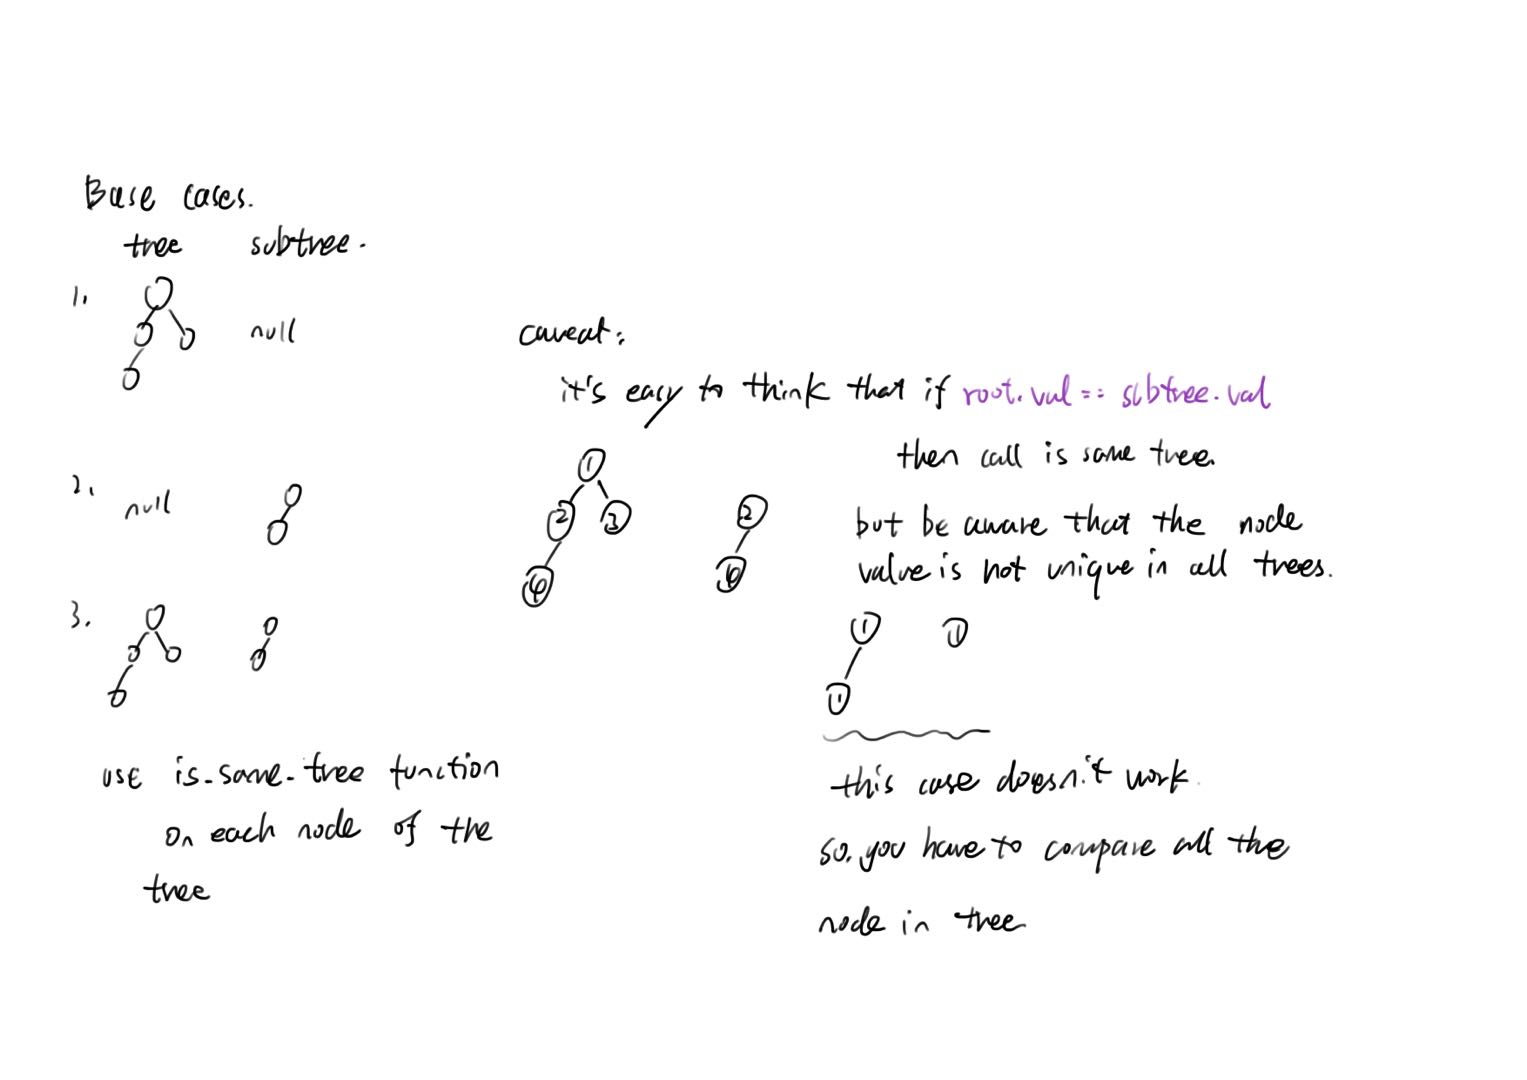 Base cases.
tree subtree.
1.
null
2.
null
3.
use is-same-tree function
on each node of the
tree
caveat:
it's easy to think that if root.val == subtree.val
then call is same tree.
1
2 3
4
2
4
but be aware that the node
value is not unique in all trees.
1 1
1
this case doesn't work.
so. you have to compare all the
node in tree